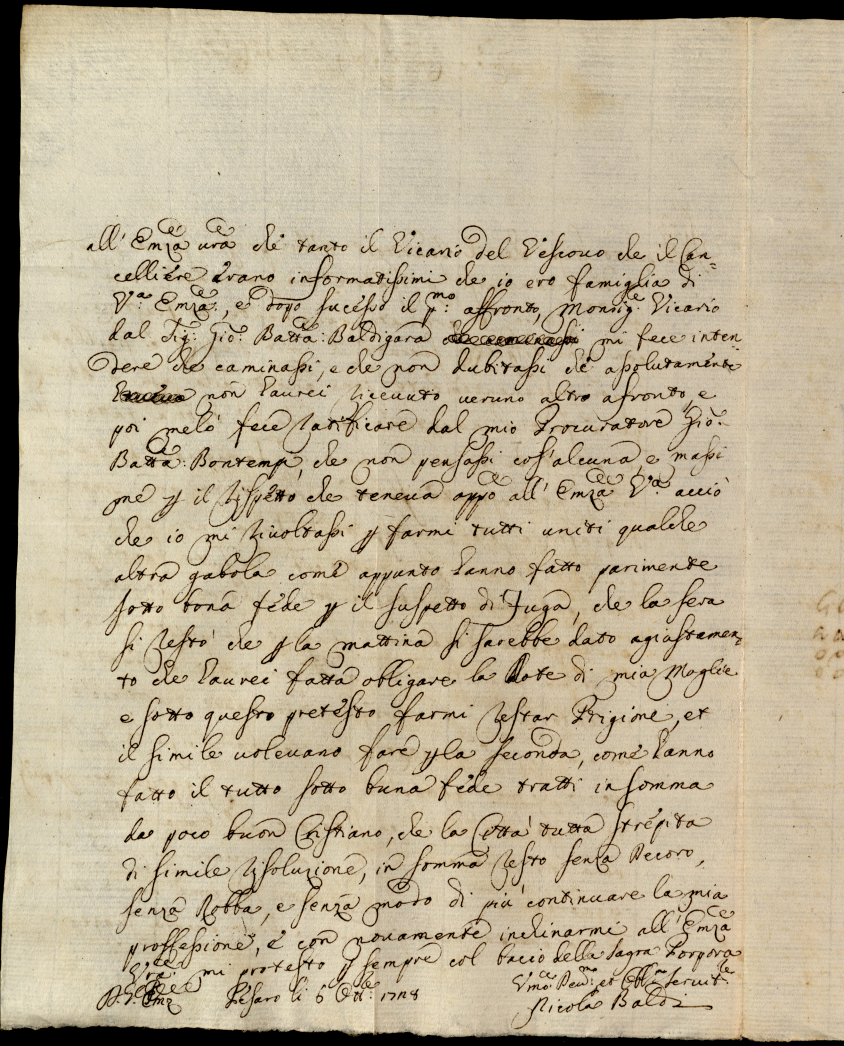 all' Emza ura che tanto il Vicario del Vescouo che il Can=
celliere erano informatissimi che io ero famiglia di
V.a Emza, e dopo sucesso il p.mo affronto, Monsig.e Vicario
dal Sig.r Gio: Batta: Baldigara mi fece inten
dere che caminassi, e che non dubitassi che assolutamente
non haurei riceuuto veruno altro afronto, e
poi melo fece ratificare dal mio Procuratore Gio:
Batta: Bontempi, che non pensassi cos'alcuna, e massi
me p il rispetto che teneua appo all' Emza V.a acciò
che io mi riuoltassi p farmi tutti uniti qualche
altra gabola come appunto hanno fatto parimente
sotto bona fede p il suspetto di fuga, che la sera
si restò che p la mattina si sarebbe dato agiustamen
to che haurei fatta obligare la Dote di mia Moglie
e sotto questo pretesto farmi restar Prigione, et
il simile uoleuano fare p la seconda, come hanno
fatto il tutto sotto buna fede tratti in somma
da poco buon Cristiano, che la Città tutta strepita
di simile risoluzione, in somma resto senza Decoro,
senza Robba, e senza modo di più continuare la mia
proffessione, e con nouamente inclinarmi all' Emza
Vra mi protesto p sempre col bacio della Sagra Porpora
D. V. Emz Pesaro li 6 Ott.e 1718 Vmo Deu.mo et Obl.mo Seruit.e
Nicola Baldi